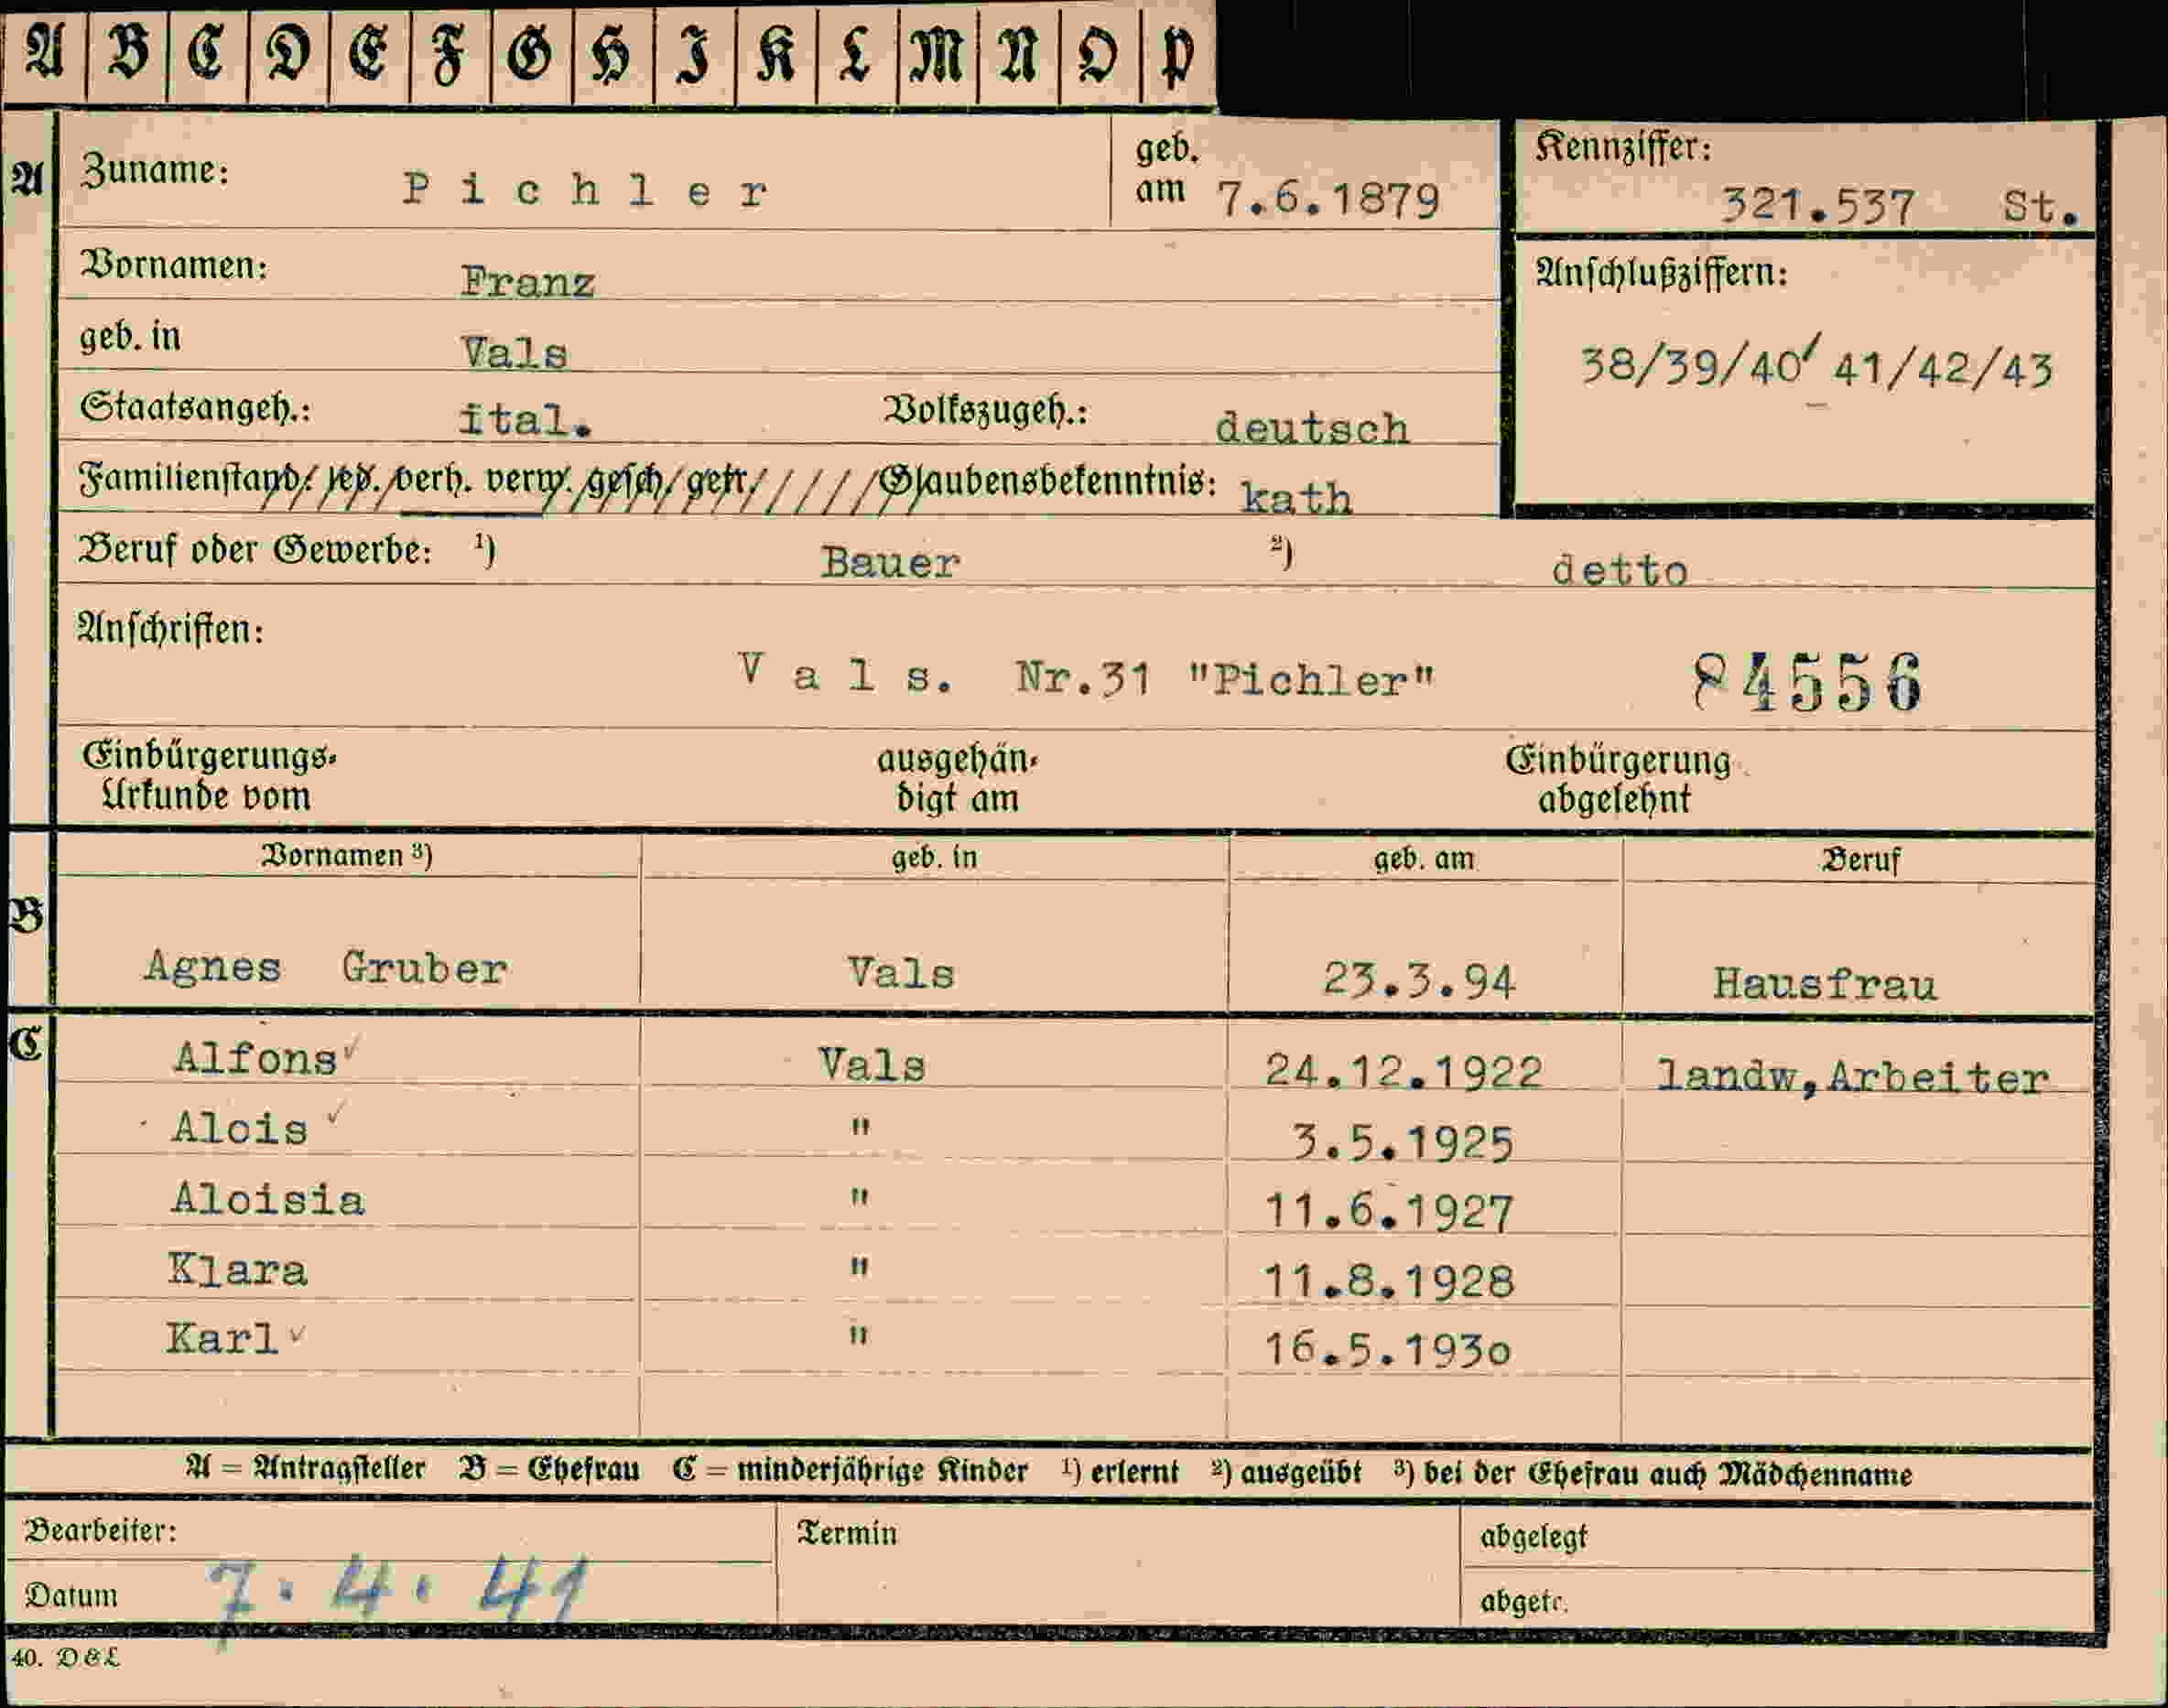 A B C D E F G H I K L M N O P
A Zuname: Pichler geb. am 7.6.1879 Kennziffer: 321.537 St.
Vornamen: Franz Anschlußziffern:
geb. in Vals 38/39/40/ 41/42/43
Staatsangeh.: ital. Volkszugeh.: deutsch
Familienstand: led. verh. verw. gesch. getr. Glaubensbekenntnis: kath
Beruf oder Gewerbe: ¹) Bauer ²) detto
Anschriften:
Vals. Nr.31 "Pichler" 84556
Einbürgerungs- ausgehän- Einbürgerung
Urkunde vom digt am abgelehnt
Vornamen ³) geb. in geb. am Beruf
B
Agnes Gruber Vals 23.3.94 Hausfrau
C Alfons ✓ Vals 24.12.1922 landw,Arbeiter
Alois ✓ " 3.5.1925
Aloisia " 11.6.1927
Klara " 11.8.1928
Karl ✓ " 16.5.193o
A = Antragsteller B = Ehefrau C = minderjährige Kinder ¹) erlernt ²) ausgeübt ³) bei der Ehefrau auch Mädchenname
Bearbeiter: Termin abgelegt
Datum 7.4.41 abgetr.
40. D&L